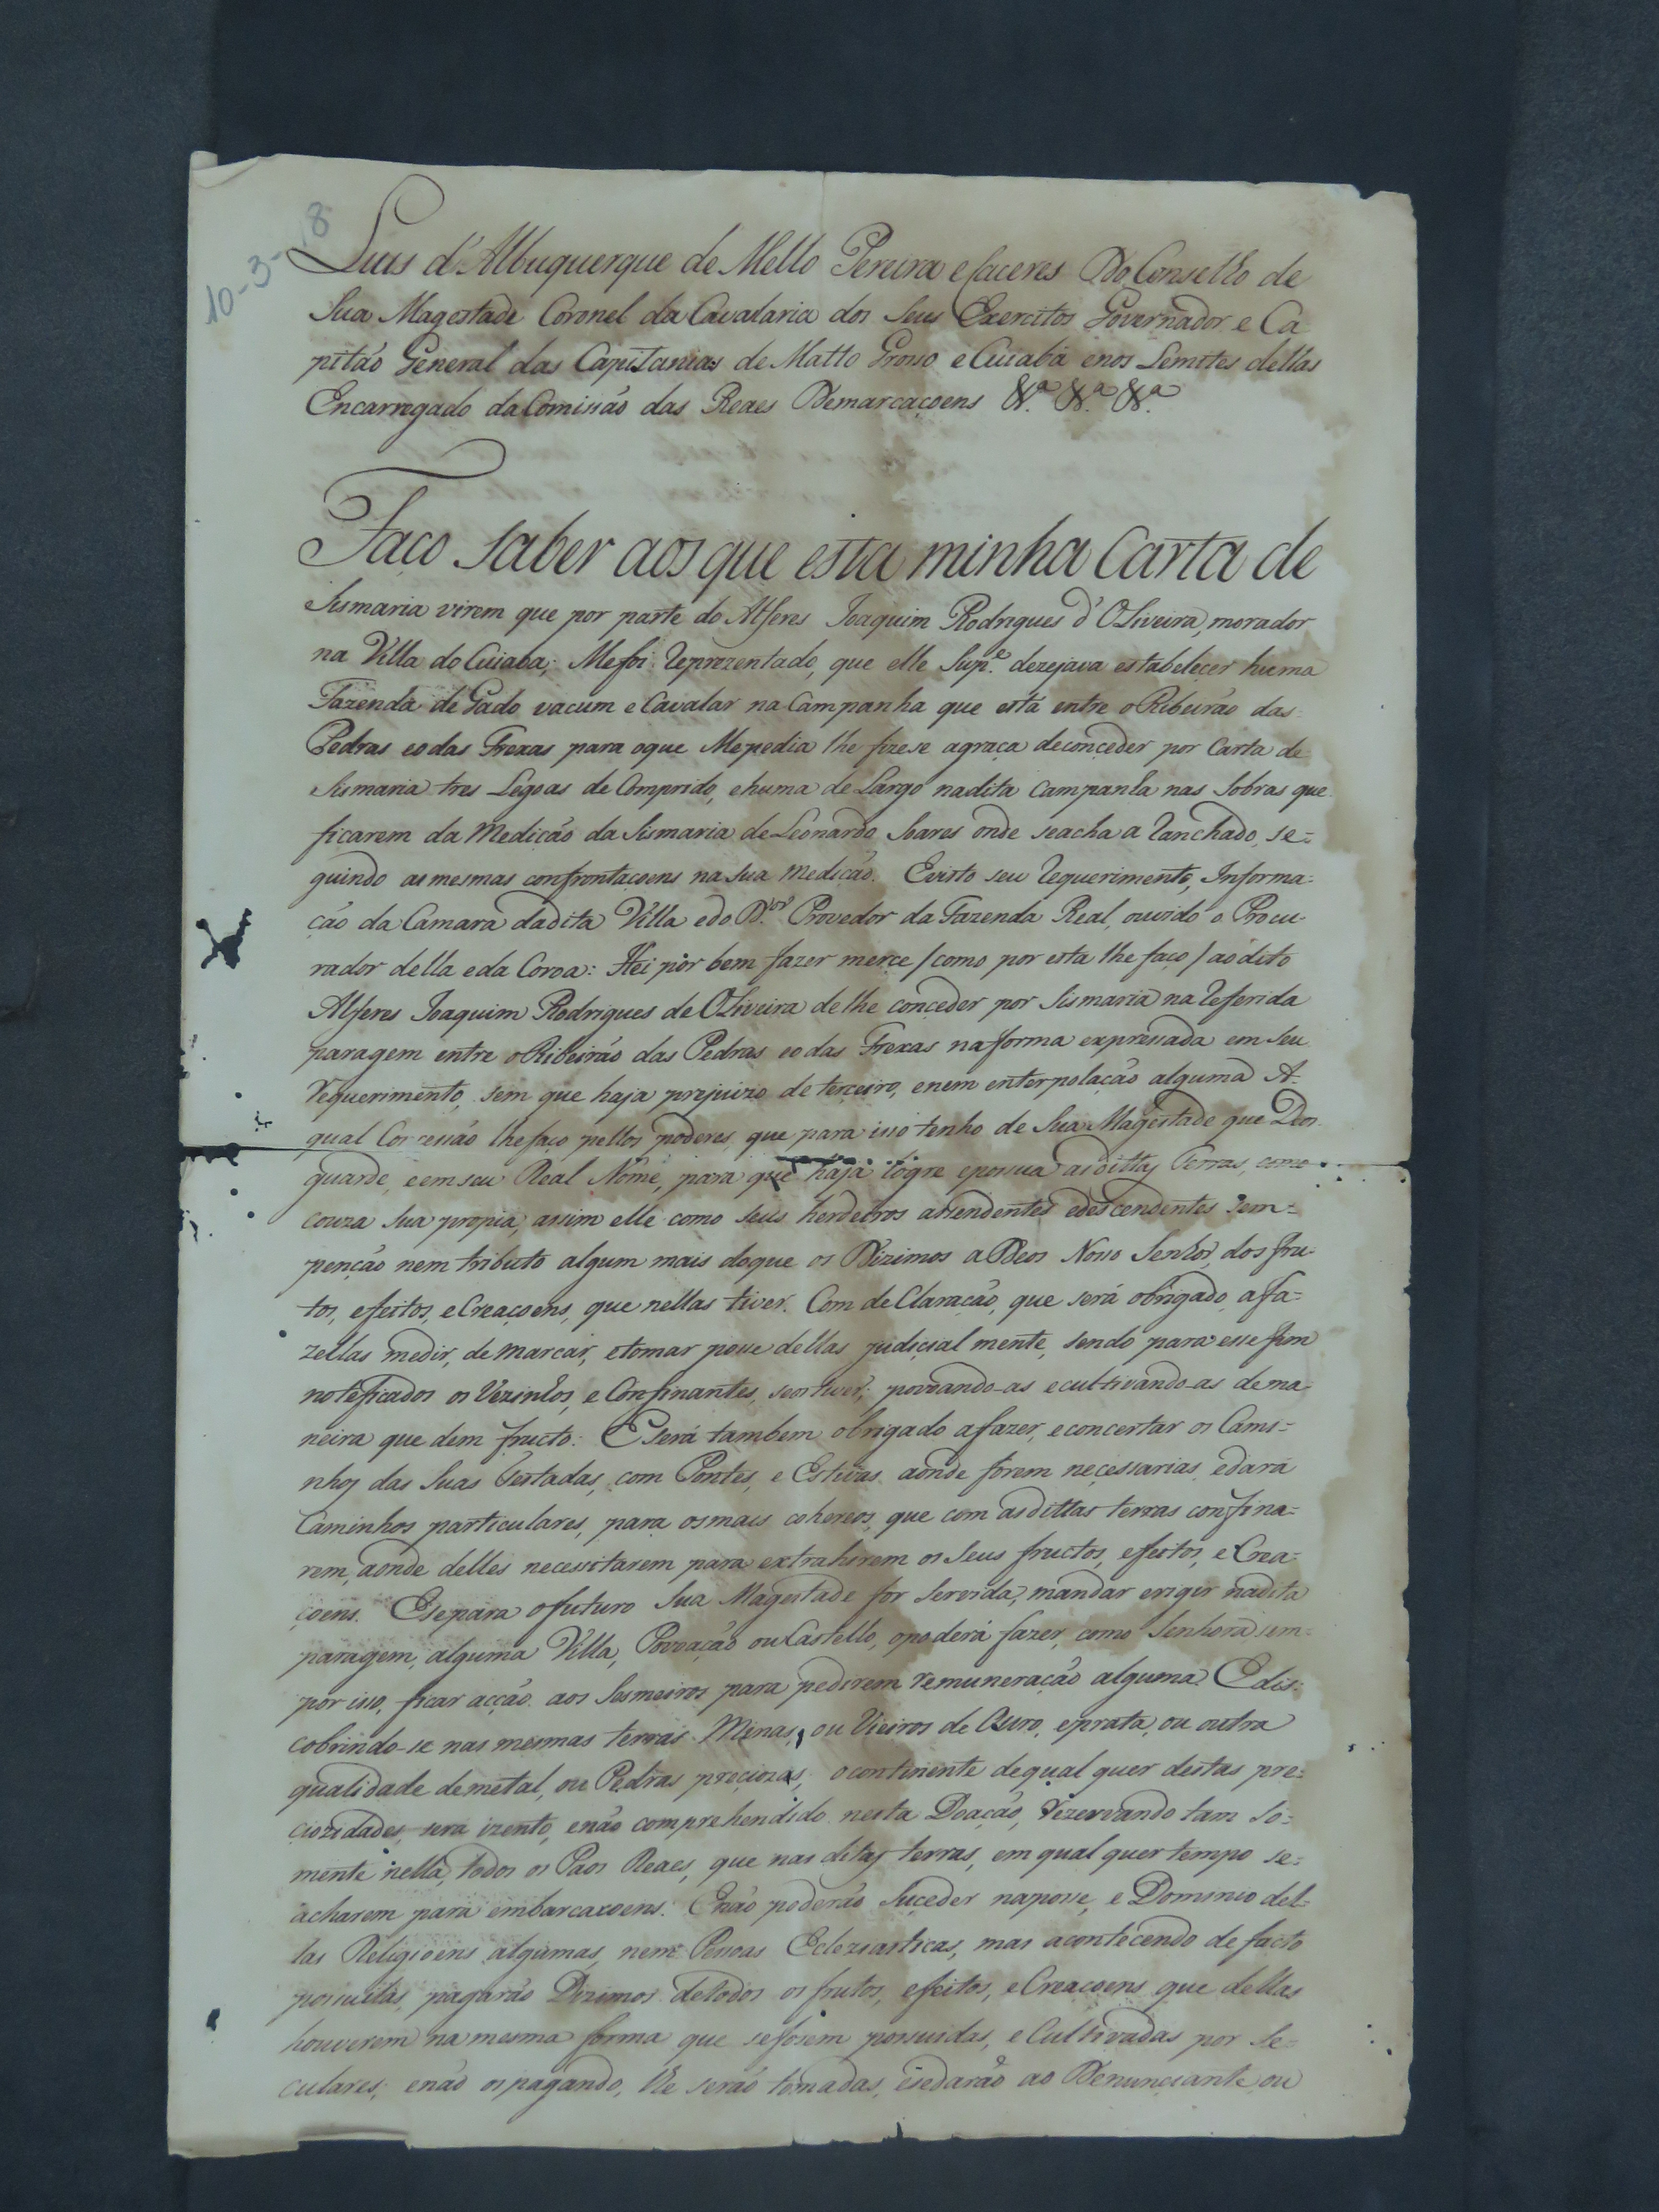 10-3-8
Luis d'Albuquerque de Mello Pereira e Caceres Do Conselho de
Sua Magestade Coronel da Cavalaria dos Seus Exercitos Governador e Ca
pitão General das Capitanias de Matto Grosso e Cuiabá e nos Lemites dellas
Encarregado da Comissão das Reaes Demarcaçoens &.ª &.ª &.ª
Faço saber aos que esta minha Carta de
Sismaria virem que por parte do Alferes Joaquim Rodrigues d'Oliveira, morador
na Villa do Cuiaba; Me foi reprezentado, que elle Sup.e dezejava estabeleçer huma
Fazenda de Gado vacum e Cavalar na Campanha que está entre o Ribeirão das
Pedras e o das Frexas para o que Me pedia lhe fizese a graça de conçeder por Carta de
Sismaria tres Legoas de Comprido, e huma de Largo na dita Campanha nas Sobras que
ficarem da Medicão da Sismaria de Leonardo Soares onde se acha a Ranchado, se=
guindo as mesmas confrontaçoens na Sua medicão. E visto seu requerimento, Informa-
ção da Camara da dita Villa e do D.or Provedor da Fazenda Real, ouvido o Procu-
rador della e da Coroa: Hei por bem fazer merçe / como por esta lhe faço / ao dito
Alferes Joaquim Rodrigues de Oliveira de lhe conçeder por Sismaria na referida
paragem entre o Ribeirão das Pedras e o das Frexas na forma expressada em Seu
requerimento, sem que haja prejuizo de terçeiro, e nem enterpolação alguma A-
qual Concessão lhe faço pellos poderes, que para isso tenho de Sua Magestade que Deos
guarde, e em seu Real Nome, para que haja logre e possua as dittas Terras, como
couza Sua propia, assim elle como seus herdeiros assendentes e descendentes sem=
penção nem tributo algum mais do que os Dizimos a Deos Nosso Senhor, dos fru-
tos, efeitos, e Creaçoens, que nellas tiver. Com de Claração, que será obrigado a fa=
zellas medir, de marcar, e tomar posse dellas judiçial mente, sendo para esse fim
noteficados os Vezinhos, e Confinantes, se os tiver; povoando-as e cultivando-as de ma
neira que dem fructo: E Será tambem obrigado a fazer, e concertar os Cami=
nhos das Suas Testadas, com Pontes, e Estivas aonde forem neçessarias, e dará
Caminhos particulares, para os mais cohereos, que com as dittas terras confina=
rem, aonde delles necessitarem para extrahirem os Seus fructos, efeitos, e Crea-
çoens. E se para o futuro Sua Magestade for Servida, mandar erigir na dita
paragem, alguma Villa, Povoação ou Castello, o poderá fazer, como Senhora sem=
por isso, ficar acção aos Sesmeiros para pedirem remuneração alguma E dis:
cobrindo-se nas mesmas terras Minas, ou Vieiros de Ouro, e prata, ou outra
qualidade de metal, ou Pedras preçiozas, o continente de qual quer destas pre=
çiozidades, sera izento, e não comprehendido nesta Doação, rezervando tam so=
mente nella, todos os Paos Reaes, que nas ditas terras, em qual quer tempo se=
acharem para embarcaxoens. E não poderão Suçeder na posse, e Dominio del-
las Religioens algumas, nem Pessoas Ecleziasticas, mas acontecendo de facto
possuillas, pagarão Dizimos de todos os frutos, efeitos, e Creaçoens que dellas
houverem na mesma forma que se fosem possuidas, e Cultivadas por Se-
culares; e não os pagando, lhe serão tomadas, e se darão ao Denunçiante, ou